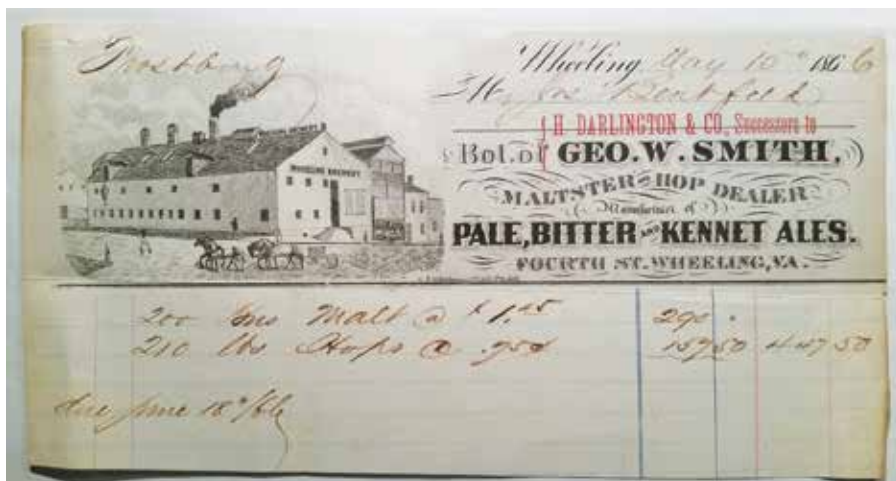 Frostburg
Wheeling May 15th 1866
M
H. DARLINGTON & CO., Successors to
Bot. of GEO. W. SMITH,
MALTSTER AND HOP DEALER
Manufacturer of
PALE, BITTER AND KENNET ALES.
FOURTH ST. WHEELING, VA.
WHEELING BREWERY
200 Malt @ $1.45 290
210 lbs Hops @ .75¢ 157 50 447 50
due June 18th/66